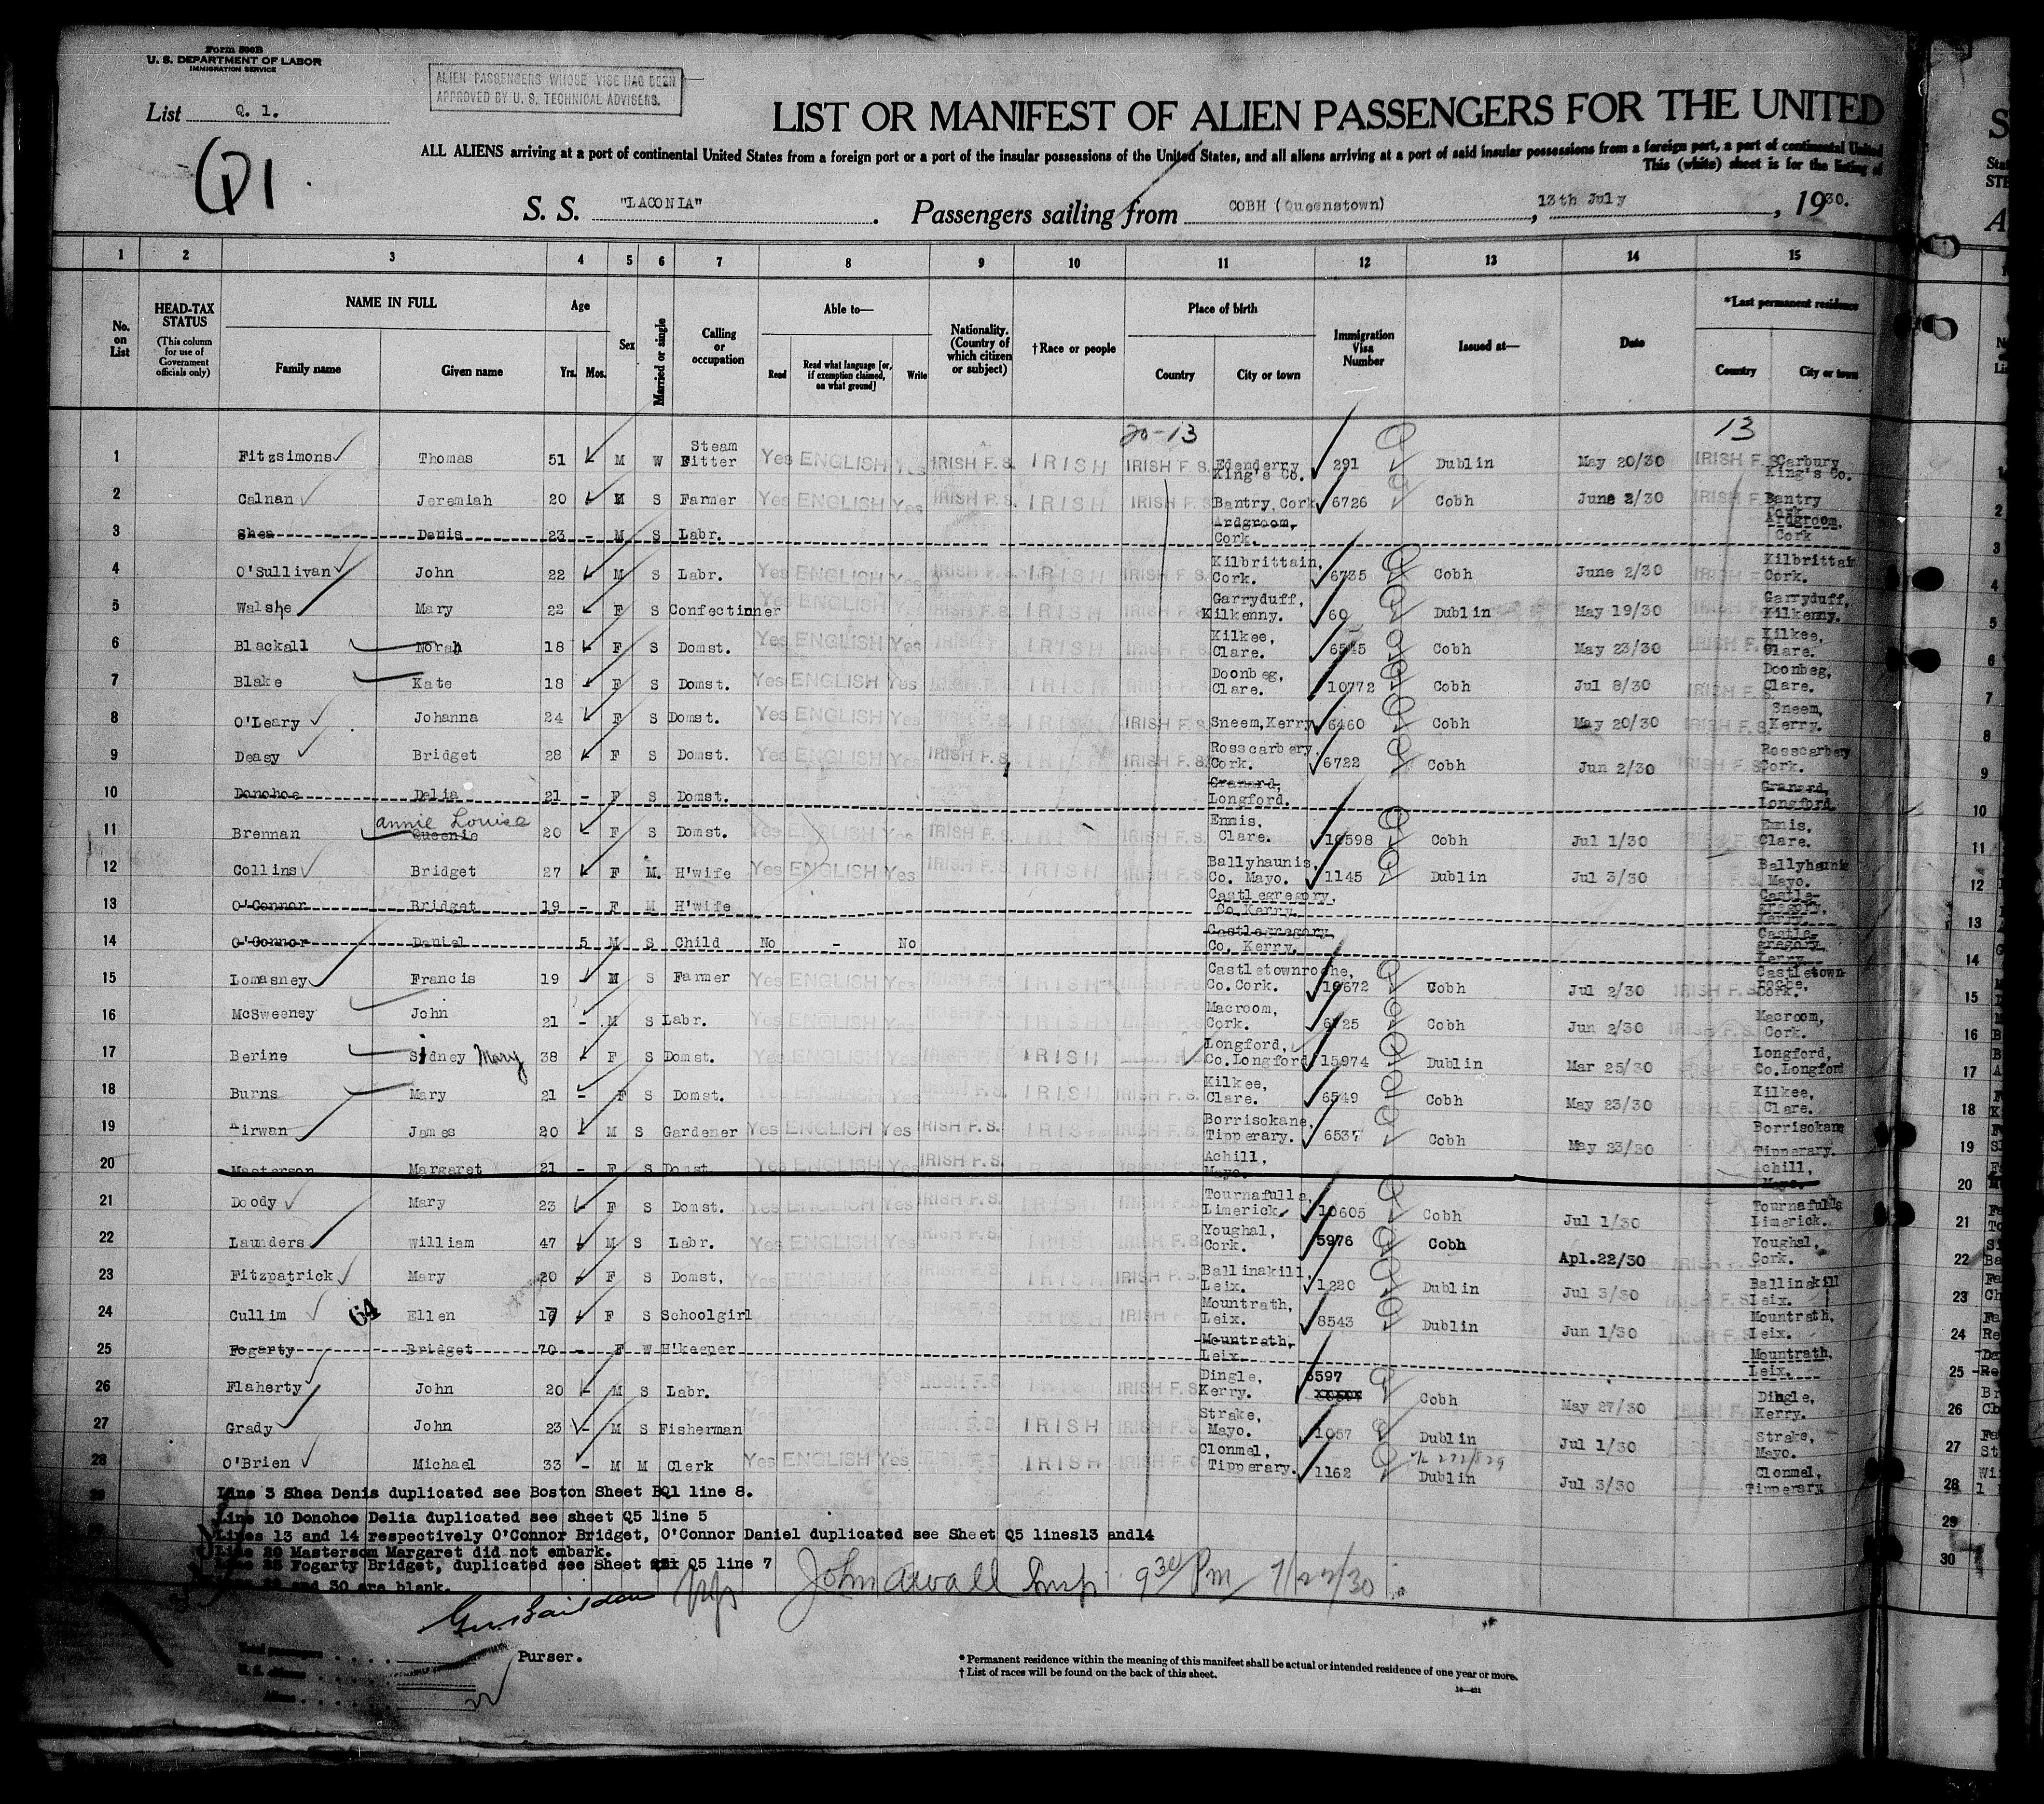 Form 500B
U. S. DEPARTMENT OF LABOR
IMMIGRATION SERVICE
ALIEN PASSENGERS WHOSE VISE HAS BEEN
APPROVED BY U. S. TECHNICAL ADVISERS.
List Q. 1.
Q1
LIST OR MANIFEST OF ALIEN PASSENGERS FOR THE UNITED
ALL ALIENS arriving at a port of continental United States from a foreign port or a port of the insular possessions of the United States, and all aliens arriving at a port of said insular possessions from a foreign port, a port of continental United
This (white) sheet is for the listing of
S. S. "LACONIA". Passengers sailing from COBH (Queenstown), 13th July, 1930.
1 2 3 4 5 6 7 8 9 10 11 12 13 14 15
No. on List
HEAD-TAX STATUS (This column for use of Government officials only)
NAME IN FULL
Family name Given name
Age Yrs. Mos.
Sex
Married or single
Calling or occupation
Able to— Read Read what language [or, if exemption claimed, on what ground] Write
Nationality. (Country of which citizen or subject)
†Race or people
Place of birth Country City or town
Immigration Visa Number
Issued at—
Date
*Last permanent residence Country City or town
20-13 13
1 Fitzsimons Thomas 51 M W Steam Fitter Yes ENGLISH Yes IRISH F.S. IRISH IRISH F.S. Edenderry King's Co. 291 Dublin May 20/30 IRISH F.S. Carbury King's Co.
2 Calnan Jeremiah 20 M S Farmer Yes ENGLISH Yes IRISH F.S. IRISH IRISH F.S. Bantry, Cork 6726 Cobh June 2/30 IRISH F.S. Bantry Cork
3 Shea Denis 23 - M S Labr. Ardgroom, Cork. Ardgroom, Cork
4 O'Sullivan John 22 M S Labr. Yes ENGLISH Yes IRISH F.S. IRISH IRISH F.S. Kilbrittain, Cork. 6735 Cobh June 2/30 IRISH F.S. Kilbrittain Cork.
5 Walshe Mary 22 F S Confectinner Yes ENGLISH Yes IRISH F.S. IRISH Garryduff, Kilkenny. 60 Dublin May 19/30 Garryduff, Kilkenny.
6 Blackall Norah 18 F S Domst. Yes ENGLISH Yes IRISH F.S. IRISH IRISH F.S. Kilkee, Clare. 6545 Cobh May 23/30 IRISH F.S. Kilkee, Clare.
7 Blake Kate 18 - F S Domst. Yes ENGLISH Yes IRISH Doonbeg, Clare. 10772 Cobh Jul 8/30 IRISH F.S. Clare.
8 O'Leary Johanna 24 F S Domst. Yes ENGLISH Yes IRISH F.S. IRISH IRISH F.S. Sneem, Kerry 6460 Cobh May 20/30 IRISH F.S. Sneem, Kerry.
9 Deasy Bridget 28 F S Domst. Yes ENGLISH Yes IRISH F.S. IRISH IRISH F.S. Rosscarbery, Cork. 6722 Cobh Jun 2/30 IRISH F.S. Rosscarbery Cork.
10 Donohoe Delia 21 - F S Domst. Granard, Longford. Granard, Longford
11 Brennan Annie Louise Queenie 20 - F S Domst. Yes ENGLISH Yes IRISH F.S. IRISH IRISH F.S. Ennis, Clare. 10598 Cobh Jul 1/30 Ennis, Clare.
12 Collins Bridget 27 F M. H'wife Yes ENGLISH Yes IRISH F.S. IRISH IRISH F.S. Ballyhaunis, Co. Mayo. 1145 Dublin Jul 3/30 Ballyhaunis Mayo.
13 O'Connor Bridget 19 - F M H'wife Castlegregory, Co. Kerry. Castle-gregory, Kerry.
14 O'Connor Daniel 5 M S Child No - No Castlegregory, Co. Kerry. Castle-gregory, Kerry.
15 Lomasney Francis 19 M S Farmer Yes ENGLISH Yes IRISH F.S. IRISH Castletownroche, Co. Cork. 10672 Cobh Jul 2/30 IRISH F.S. Castletown-roche, Cork.
16 McSweeney John 21 - M S Labr. Yes ENGLISH Yes Macroom, Cork. 6725 Cobh Jun 2/30 IRISH F.S. Macroom, Cork.
17 Berine Sidney Mary 38 F S Domst. Yes ENGLISH Yes IRISH Longford, Co. Longford 15974 Dublin Mar 25/30 Longford, Co. Longford
18 Burns Mary 21 - F S Domst. Yes ENGLISH Yes IRISH F.S. IRISH IRISH F.S. Kilkee, Clare. 6549 Cobh May 23/30 Kilkee, Clare.
19 Kirwan James 20 M S Gardener Yes ENGLISH Yes IRISH F.S. IRISH IRISH F.S. Borrisokane, Tipperary. 6537 Cobh May 23/30 Borrisokane Tipperary.
20 Masterson Margaret 21 - F S Domst. Yes ENGLISH Yes IRISH F.S. Achill, Mayo. Achill, Mayo.
21 Doody Mary 23 F S Domst. Yes ENGLISH Yes IRISH F.S. IRISH F.S. Tournafulla, Limerick. 10605 Cobh Jul 1/30 Tournafulla Limerick.
22 Launders William 47 M S Labr. Yes ENGLISH Yes IRISH F.S. IRISH F.S. Youghal, Cork. 5976 Cobh Apl.22/30 Youghal, Cork.
23 Fitzpatrick Mary 20 F S Domst, Yes ENGLISH Yes IRISH IRISH F.S. Ballinakill, Leix. 1220 Dublin Jul 3/30 IRISH F.S. Ballinakill Leix.
24 Cullim 64 Ellen 17 F S Schoolgirl Mountrath, Leix. 8543 Dublin Jun 1/30 Mountrath, Leix.
25 Fogarty Bridget 70 - F W H'keeper Mountrath, Leix. Mountrath, Leix.
26 Flaherty John 20 M S Labr. IRISH F.S. IRISH F.S. Dingle, Kerry. 6597 Cobh May 27/30 Dingle, Kerry.
27 Grady John 23 - M S Fisherman IRISH IRISH F.S. Strake, Mayo. 1057 Dublin Jul 1/30 Strake, Mayo.
28 O'Brien Michael 33 - M M Clerk Yes ENGLISH Yes IRISH F.S. IRISH IRISH F.S. Clonmel, Tipperary. 1162 Dublin Jul 3/30 Clonmel, Tipperary
29 Line 3 Shea Denis duplicated see Boston Sheet BQ1 line 8.
Line 10 Donohoe Delia duplicated see sheet Q5 line 5
Lines 13 and 14 respectively O'Connor Bridget, O'Connor Daniel duplicated see Sheet Q5 lines13 and14
Line 20 Masterson Margaret did not embark.
Line 25 Fogarty Bridget, duplicated see Sheet Q5 line 7
29 and 30 are blank.
9 30 Pm 7/22/30
Total passengers
U. S. citizens
Aliens
Purser.
* Permanent residence within the meaning of this manifest shall be actual or intended residence of one year or more.
† List of races will be found on the back of this sheet.